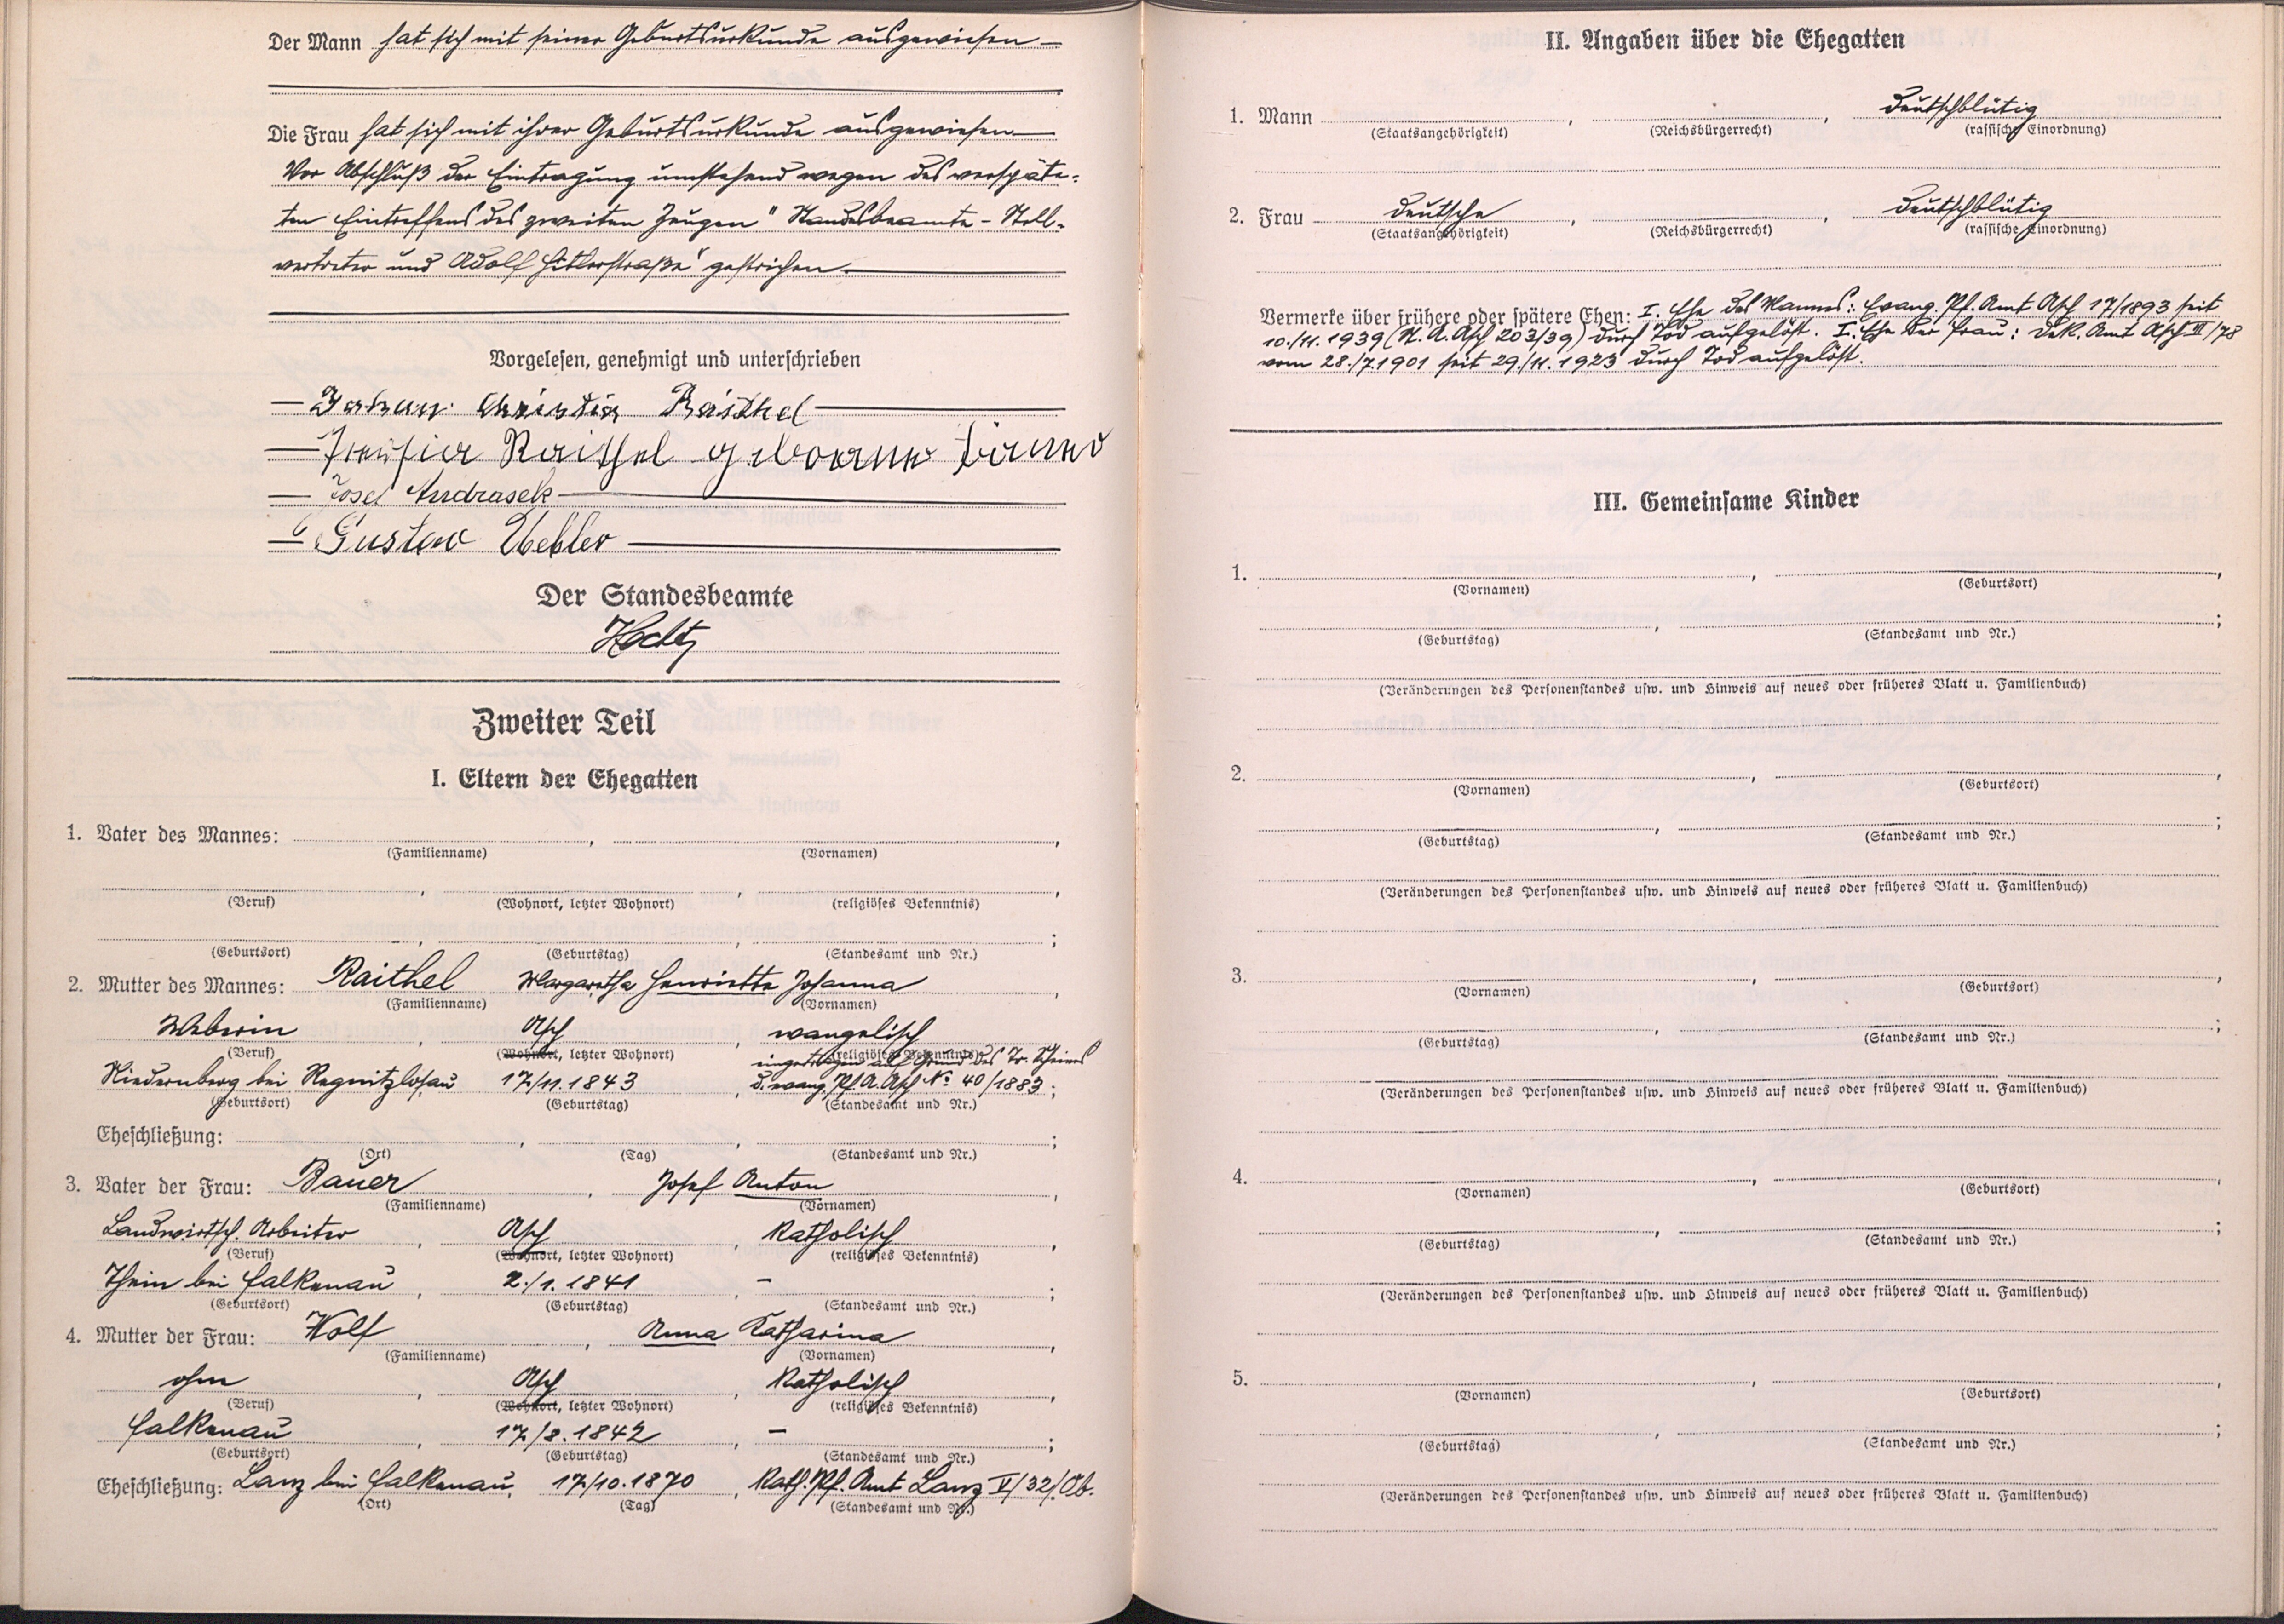 Der Mann hat sich mit seiner Geburtsurkunde ausgewiesen —
Die Frau hat sich mit ihrer Geburtsurkunde ausgewiesen —
Vor Abschluß der Eintragung umstehend wegen des verspäte-
ten Eintreffens des zweiten Zeugen "Standesbeamte - Stell-
vertreter und Adolf Hitlerstraße" gestrichen. —
Vorgelesen, genehmigt und unterschrieben
— Johann Christian Raithel —
— Raithel geborene
— Josef Andrasek —
— Gustav Uebler —
Der Standesbeamte
Zweiter Teil
I. Eltern der Ehegatten
1. Vater des Mannes: ,
(Familienname) (Vornamen)
(Beruf) (Wohnort, letzter Wohnort) (religiöses Bekenntnis)
(Geburtsort) (Geburtstag) (Standesamt und Nr.)
2. Mutter des Mannes: Raithel Margaretha Henriette Johanna
(Familienname) (Vornamen)
Weberin , Asch , evangelisch
(Beruf) (Wohnort, letzter Wohnort) (religiöses Bekenntnis)
eingetragen auf Grund des Tr. Scheines
Niedernberg bei Regnitzlosau 17./11.1843 , d. evang. Pf. A. Asch No 40/1883 ;
(Geburtsort) (Geburtstag) (Standesamt und Nr.)
Eheschließung: , , ;
(Ort) (Tag) (Standesamt und Nr.)
3. Vater der Frau: Bauer , Josef Anton ,
(Familienname) (Vornamen)
Landwirtsch. Arbeiter , Asch , katholisch ,
(Beruf) (Wohnort, letzter Wohnort) (religiöses Bekenntnis)
Thein bei Falkenau , 2./1.1841 , — ;
(Geburtsort) (Geburtstag) (Standesamt und Nr.)
4. Mutter der Frau: Wolf , Anna Katharina ,
(Familienname) (Vornamen)
ohne , Asch , katholisch ,
(Beruf) (Wohnort, letzter Wohnort) (religiöses Bekenntnis)
Falkenau , 17./8.1842 , — ;
(Geburtsort) (Geburtstag) (Standesamt und Nr.)
Eheschließung: Lanz bei Falkenau, 17./10.1870 , Kath. Pf. Amt Lanz V/32/Ob.
(Ort) (Tag) (Standesamt und Nr.)
II. Angaben über die Ehegatten
1. Mann , , deutschblütig
(Staatsangehörigkeit) (Reichsbürgerrecht) (rassische Einordnung)
2. Frau deutsche , , deutschblütig
(Staatsangehörigkeit) (Reichsbürgerrecht) (rassische Einordnung)
Vermerke über frühere oder spätere Ehen: I. Ehe des Mannes: Evang. Pf. Amt Asch 17/1893 seit
10./11.1939 (St. A. Asch 203/39) durch Tod aufgelöst. I. Ehe der Frau: Dek. Amt Asch III/78
vom 28./7.1901 seit 29./11.1923 durch Tod aufgelöst.
III. Gemeinsame Kinder
1. , ,
(Vornamen) (Geburtsort)
(Geburtstag) (Standesamt und Nr.)
(Veränderungen des Personenstandes usw. und Hinweis auf neues oder früheres Blatt u. Familienbuch)
2. , ,
(Vornamen) (Geburtsort)
(Geburtstag) (Standesamt und Nr.)
(Veränderungen des Personenstandes usw. und Hinweis auf neues oder früheres Blatt u. Familienbuch)
3. , ,
(Vornamen) (Geburtsort)
(Geburtstag) (Standesamt und Nr.)
(Veränderungen des Personenstandes usw. und Hinweis auf neues oder früheres Blatt u. Familienbuch)
4. , ,
(Vornamen) (Geburtsort)
(Geburtstag) (Standesamt und Nr.)
(Veränderungen des Personenstandes usw. und Hinweis auf neues oder früheres Blatt u. Familienbuch)
5. , ,
(Vornamen) (Geburtsort)
(Geburtstag) (Standesamt und Nr.)
(Veränderungen des Personenstandes usw. und Hinweis auf neues oder früheres Blatt u. Familienbuch)